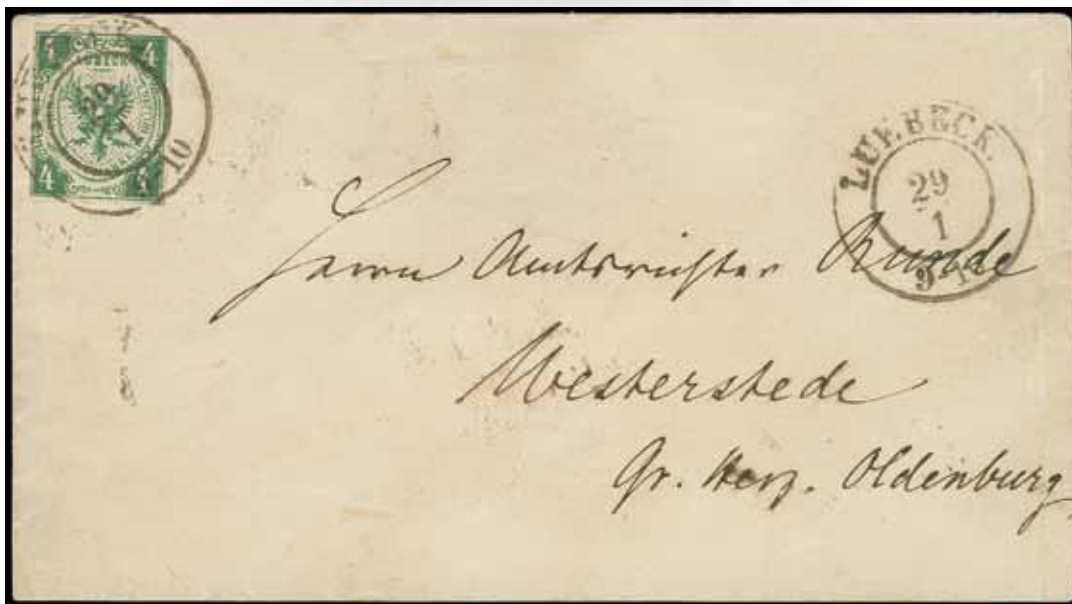 4 4
LUEBECK
29
1
10
4 4
LUEBECK.
29
1
9-1
Herrn Amtsrichter Runde
Westerstede
Gr. Herz. Oldenburg